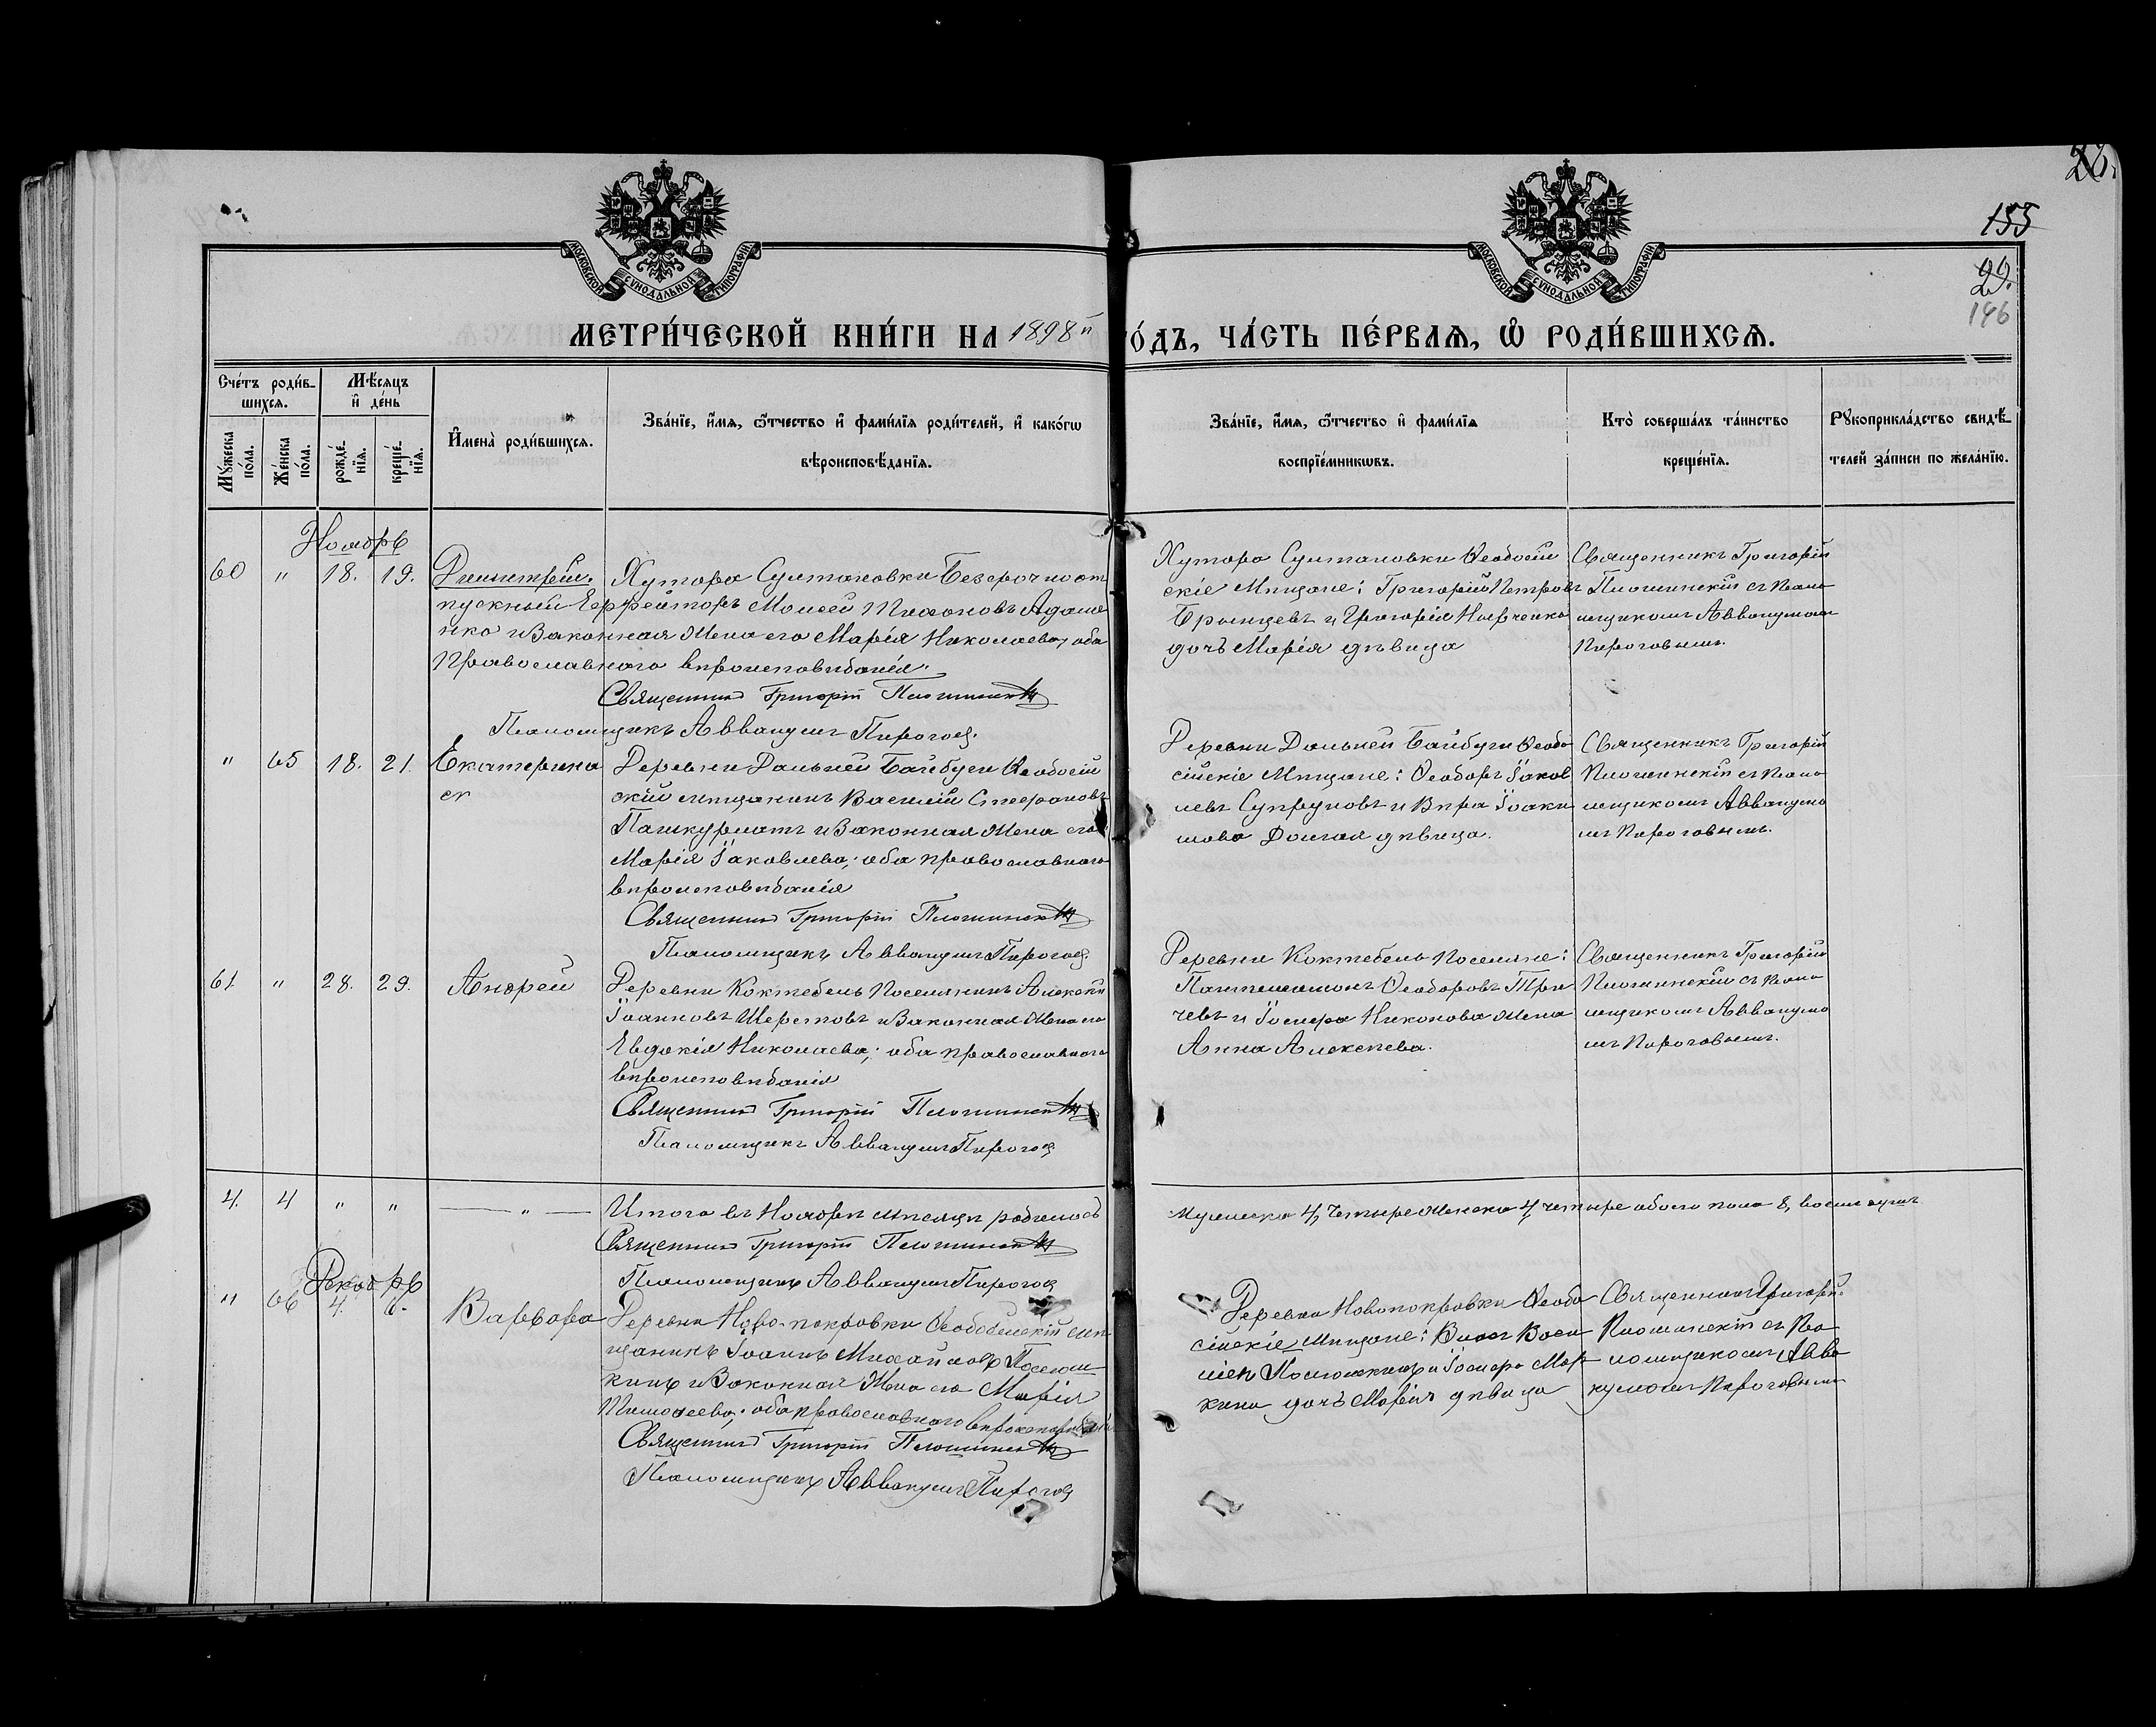 155
29.
146
МОСКОВСКОЙ СУНОДАЛЬНОЙ ТИПОГРАФІИ
МОСКОВСКОЙ СУНОДАЛЬНОЙ ТИПОГРАФІИ
МЕТРИ́ЧЕСКОЙ КНИ́ГИ НА 1898й ГО́ДЪ, ЧА́СТЬ ПЕ́РВАѦ, Ѡ РОДИ́ВШИХСѦ.
Сче́тъ роди́в-
шихсѧ.
Мѣ́сѧцъ
и҆ де́нь
Мꙋ́жеска по́ла.
Же́нска по́ла.
рожде́нїѧ.
креще́нїѧ.
И҆мена̀ роди́вшихсѧ.
Зва́нїе, и҆́мѧ, ѻ҆́тчество и҆ фами́лїѧ роди́телей, и҆ како́гѡ
вѣроисповѣ́данїѧ.
Зва́нїе, и҆́мѧ, ѻ҆́тчество и҆ фами́лїѧ
воспрїе́мникѡвъ.
Кто̀ соверша́лъ та́инство
креще́нїѧ.
Рꙋкоприкла́дство свидѣ́-
телей за́писи по жела́нїю.
Ноябрь
60 " 18. 19. Димитрій. Хутора Султановки Безсрочноот
пускный Ефрейторъ Моисей Тихоновъ Адаме
нко и Законная Жена его Марія Николаева, оба
Православнаго вѣроисповѣданія.
Священникъ Григорій Плотинскій
Псаломщикъ Аввакумъ Пироговъ.
Хутора Султановки Ѳеодосій
скіе Мѣщане: Григорій Петровъ
Брынцевъ и Григорія
дочь Марія дѣвица
Священникъ Григорій
Плотинскій съ Псало
мщикомъ Аввакумомъ
Пироговымъ.
" 65 18. 21. Екатерина
Деревни Дальней Байбуги Ѳеодосій
скій мѣщанинъ Василій Стефановъ
и Законная Жена его
Марія Іаковлева; оба православнаго
вѣроисповѣданія
Священникъ Григорій Плотинскій
Псаломщикъ Аввакумъ Пироговъ.
Деревни Дальней Байбуги Ѳеодо
сійскіе Мѣщане: Ѳеодоръ Іаков
левъ Супруновъ и Вѣра Іоаки
мова Долгая дѣвица.
Священникъ Григорій
Плотинскій съ Псало
мщикомъ Аввакумо
мъ Пироговымъ.
61 " 28. 29. Андрей
Деревни Коктебель Поселянинъ Алексѣй
Іоанновъ Шереметовъ и Законная Жена его
Евдокія Николаева; оба православнаго
вѣроисповѣданія
Священникъ Григорій Плотинскій
Псаломщикъ Аввакумъ Пироговъ
Деревни Коктебель Поселяне:
Пантелеимонъ Ѳеодоровъ
чевъ и Іосифа Никонова Жена
Анна Алексѣева.
Священникъ Григорій
Плотинскій съ Псало
мщикомъ Аввакумо
мъ Пироговымъ.
4. 4 " " — " — Итого въ Ноябрѣ мѣсяцѣ родилось
Мужеска 4, Четыре Женска 4, четыре обоего пола 8, восемь душъ
Священникъ Григорій Плотинскій
Псаломщикъ Аввакумъ Пироговъ
Декабрь
" 66 4. 6. Варвара
Деревни Ново-покровки Ѳеодосійскій мѣ
щанинъ Іоаннъ Михайловъ
кинъ и Законная Жена его Марія
Тимоѳеева; оба православнаго вѣроисповѣданія
Священникъ Григорій Плотинскій
Псаломщикъ Аввакумъ Пироговъ
Деревни Новопокровки Ѳеодо
сійскіе Мѣщане: Васи
и Іосифа Мар
кина дочь Марія дѣвица
Священникъ Григорій
Плотинскій съ Пса
ломщикомъ Авва
кумомъ Пироговымъ